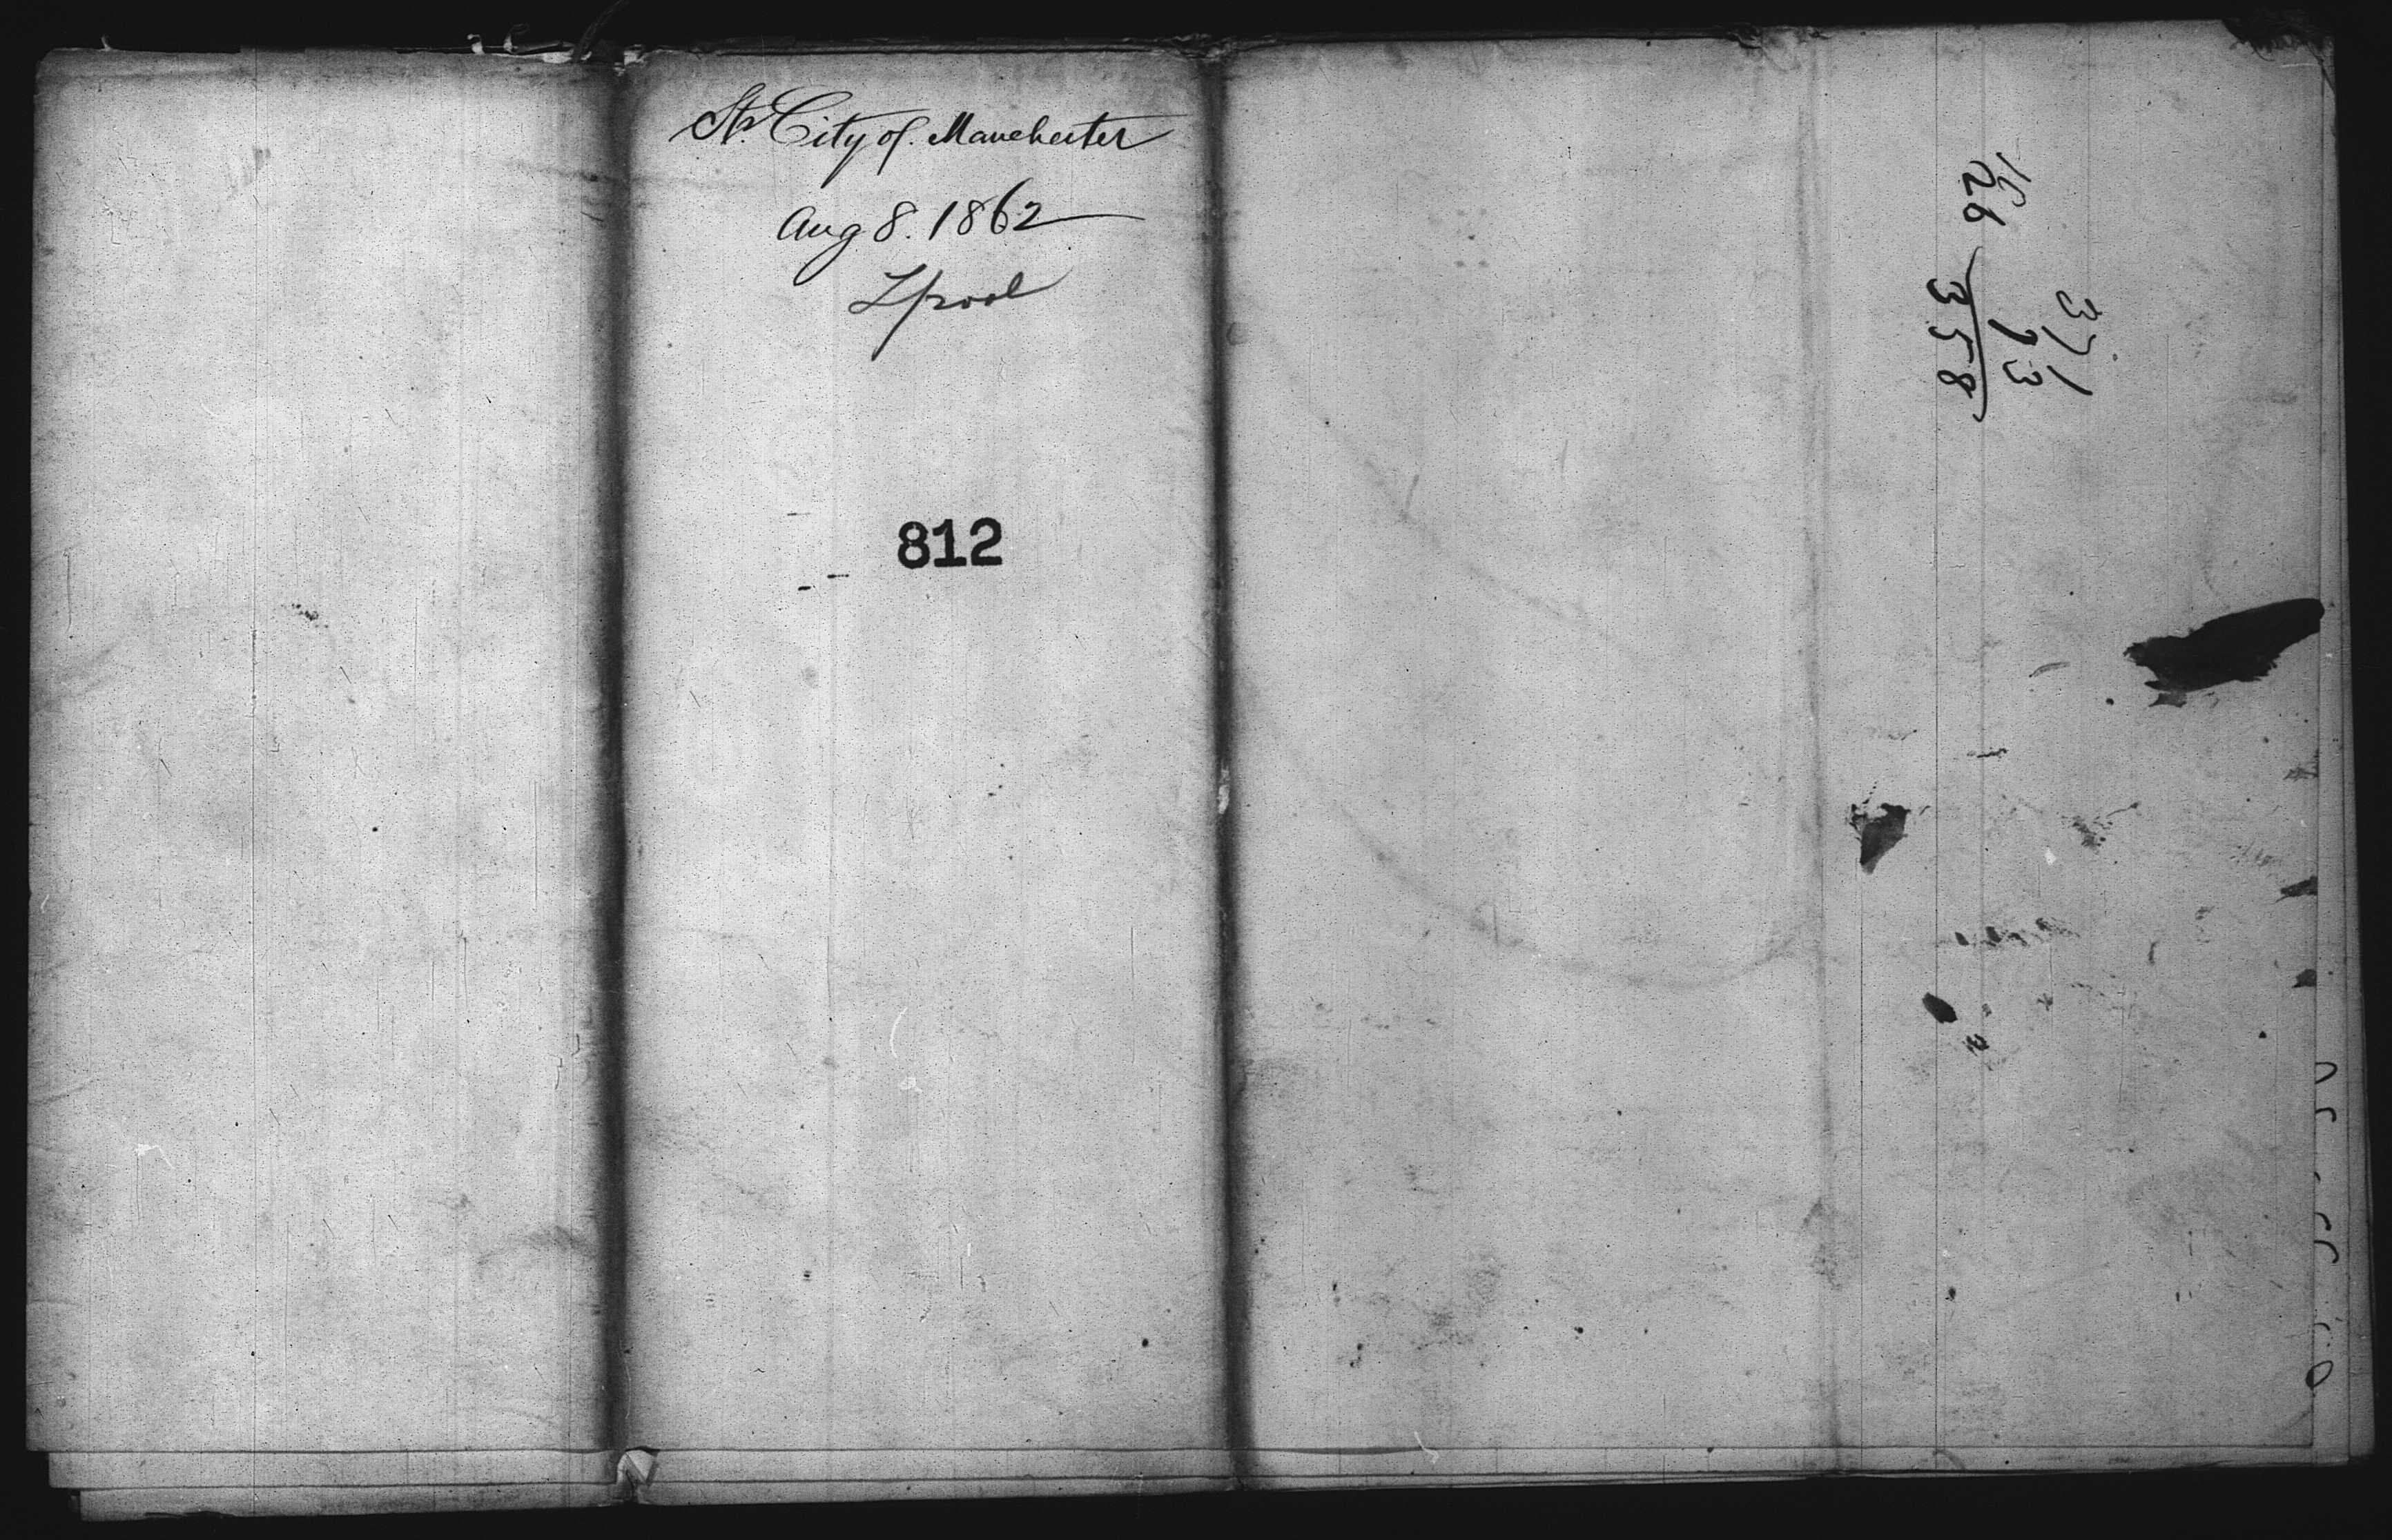 Str City of Manchester
Aug 8. 1862
Lpool
812
371
13
26
358